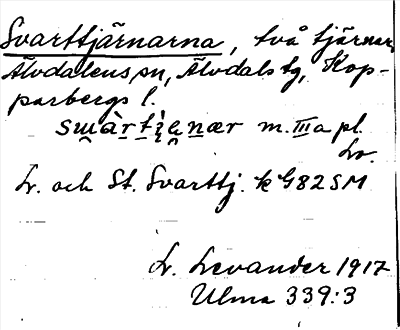 Svarttjärnarna, två tjärnar,
Älvdalens sn, Älvdals tg, Kop-
parbergs l.
m. III a pl.
Lv.
L. och St. Svarttj. k G82SM
L. Levander 1917
Ulma 339:3